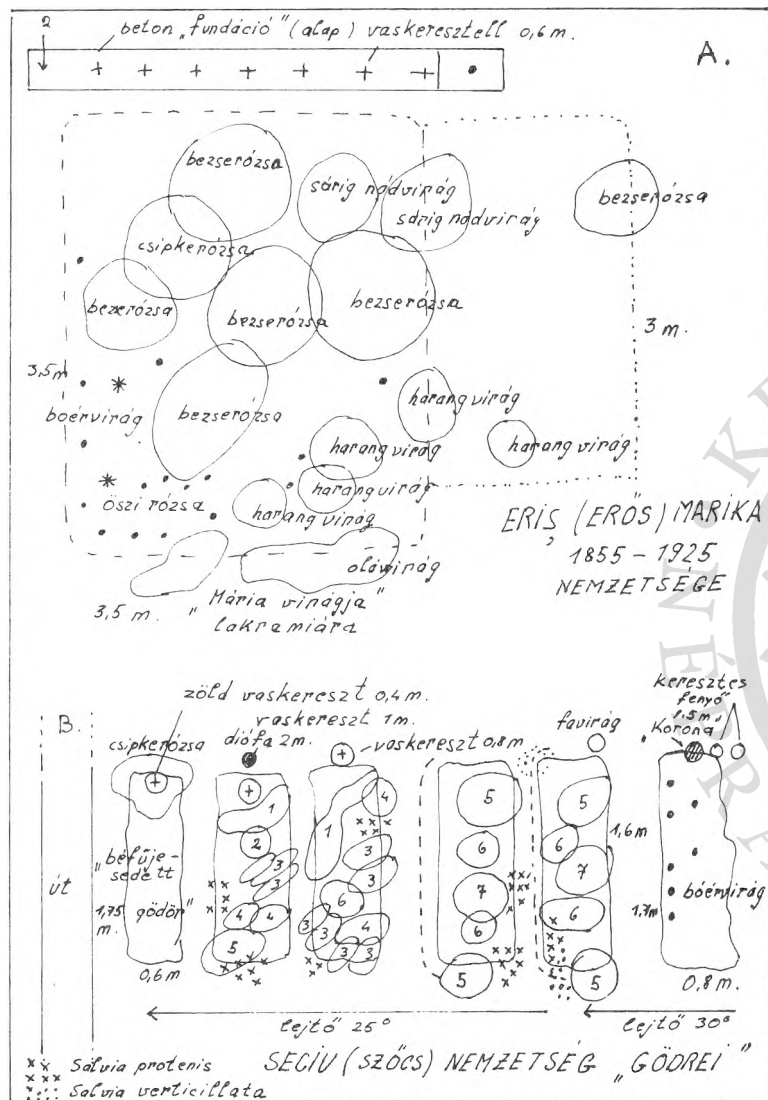 2
beton „fundáció" (alap) vaskeresztell 0,6 m.
A.
bezserózsa
sárig nádvirág
sárig nádvirág
bezserózsa
csipkerózsa
bezserózsa
bezserózsa
bezserózsa
3 m.
3,5 m
boérvirág
bezserózsa
harang virág
harang virág
harang virág
harang virág
harang virág
őszi rózsa
oláwirág
3,5 m.
„Mária virágja"
lakramiára
ERIȘ (ERŐS) MARIKA
1855 – 1925
NEMZETSÉGE
B.
zöld vaskereszt 0,4 m.
vaskereszt 1 m.
csipkerózsa
diófa 2 m.
vaskereszt 0,8 m
favirág
keresztes
fenyő
1,5 m
Korona
út
„béfűje-
sedett
gödör"
1,75
m.
0,6 m
1
2
3
3
3
4
4
5
4
1
3
3
6
4
3
3
3
3
5
6
7
6
5
5
6
7
6
5
1,6 m
1,7 m
bóérvirág
0,8 m.
lejtő 25°
lejtő 30°
Salvia protenis
Salvia verticillata
SECIU (SZŐCS) NEMZETSÉG „GÖDREI"